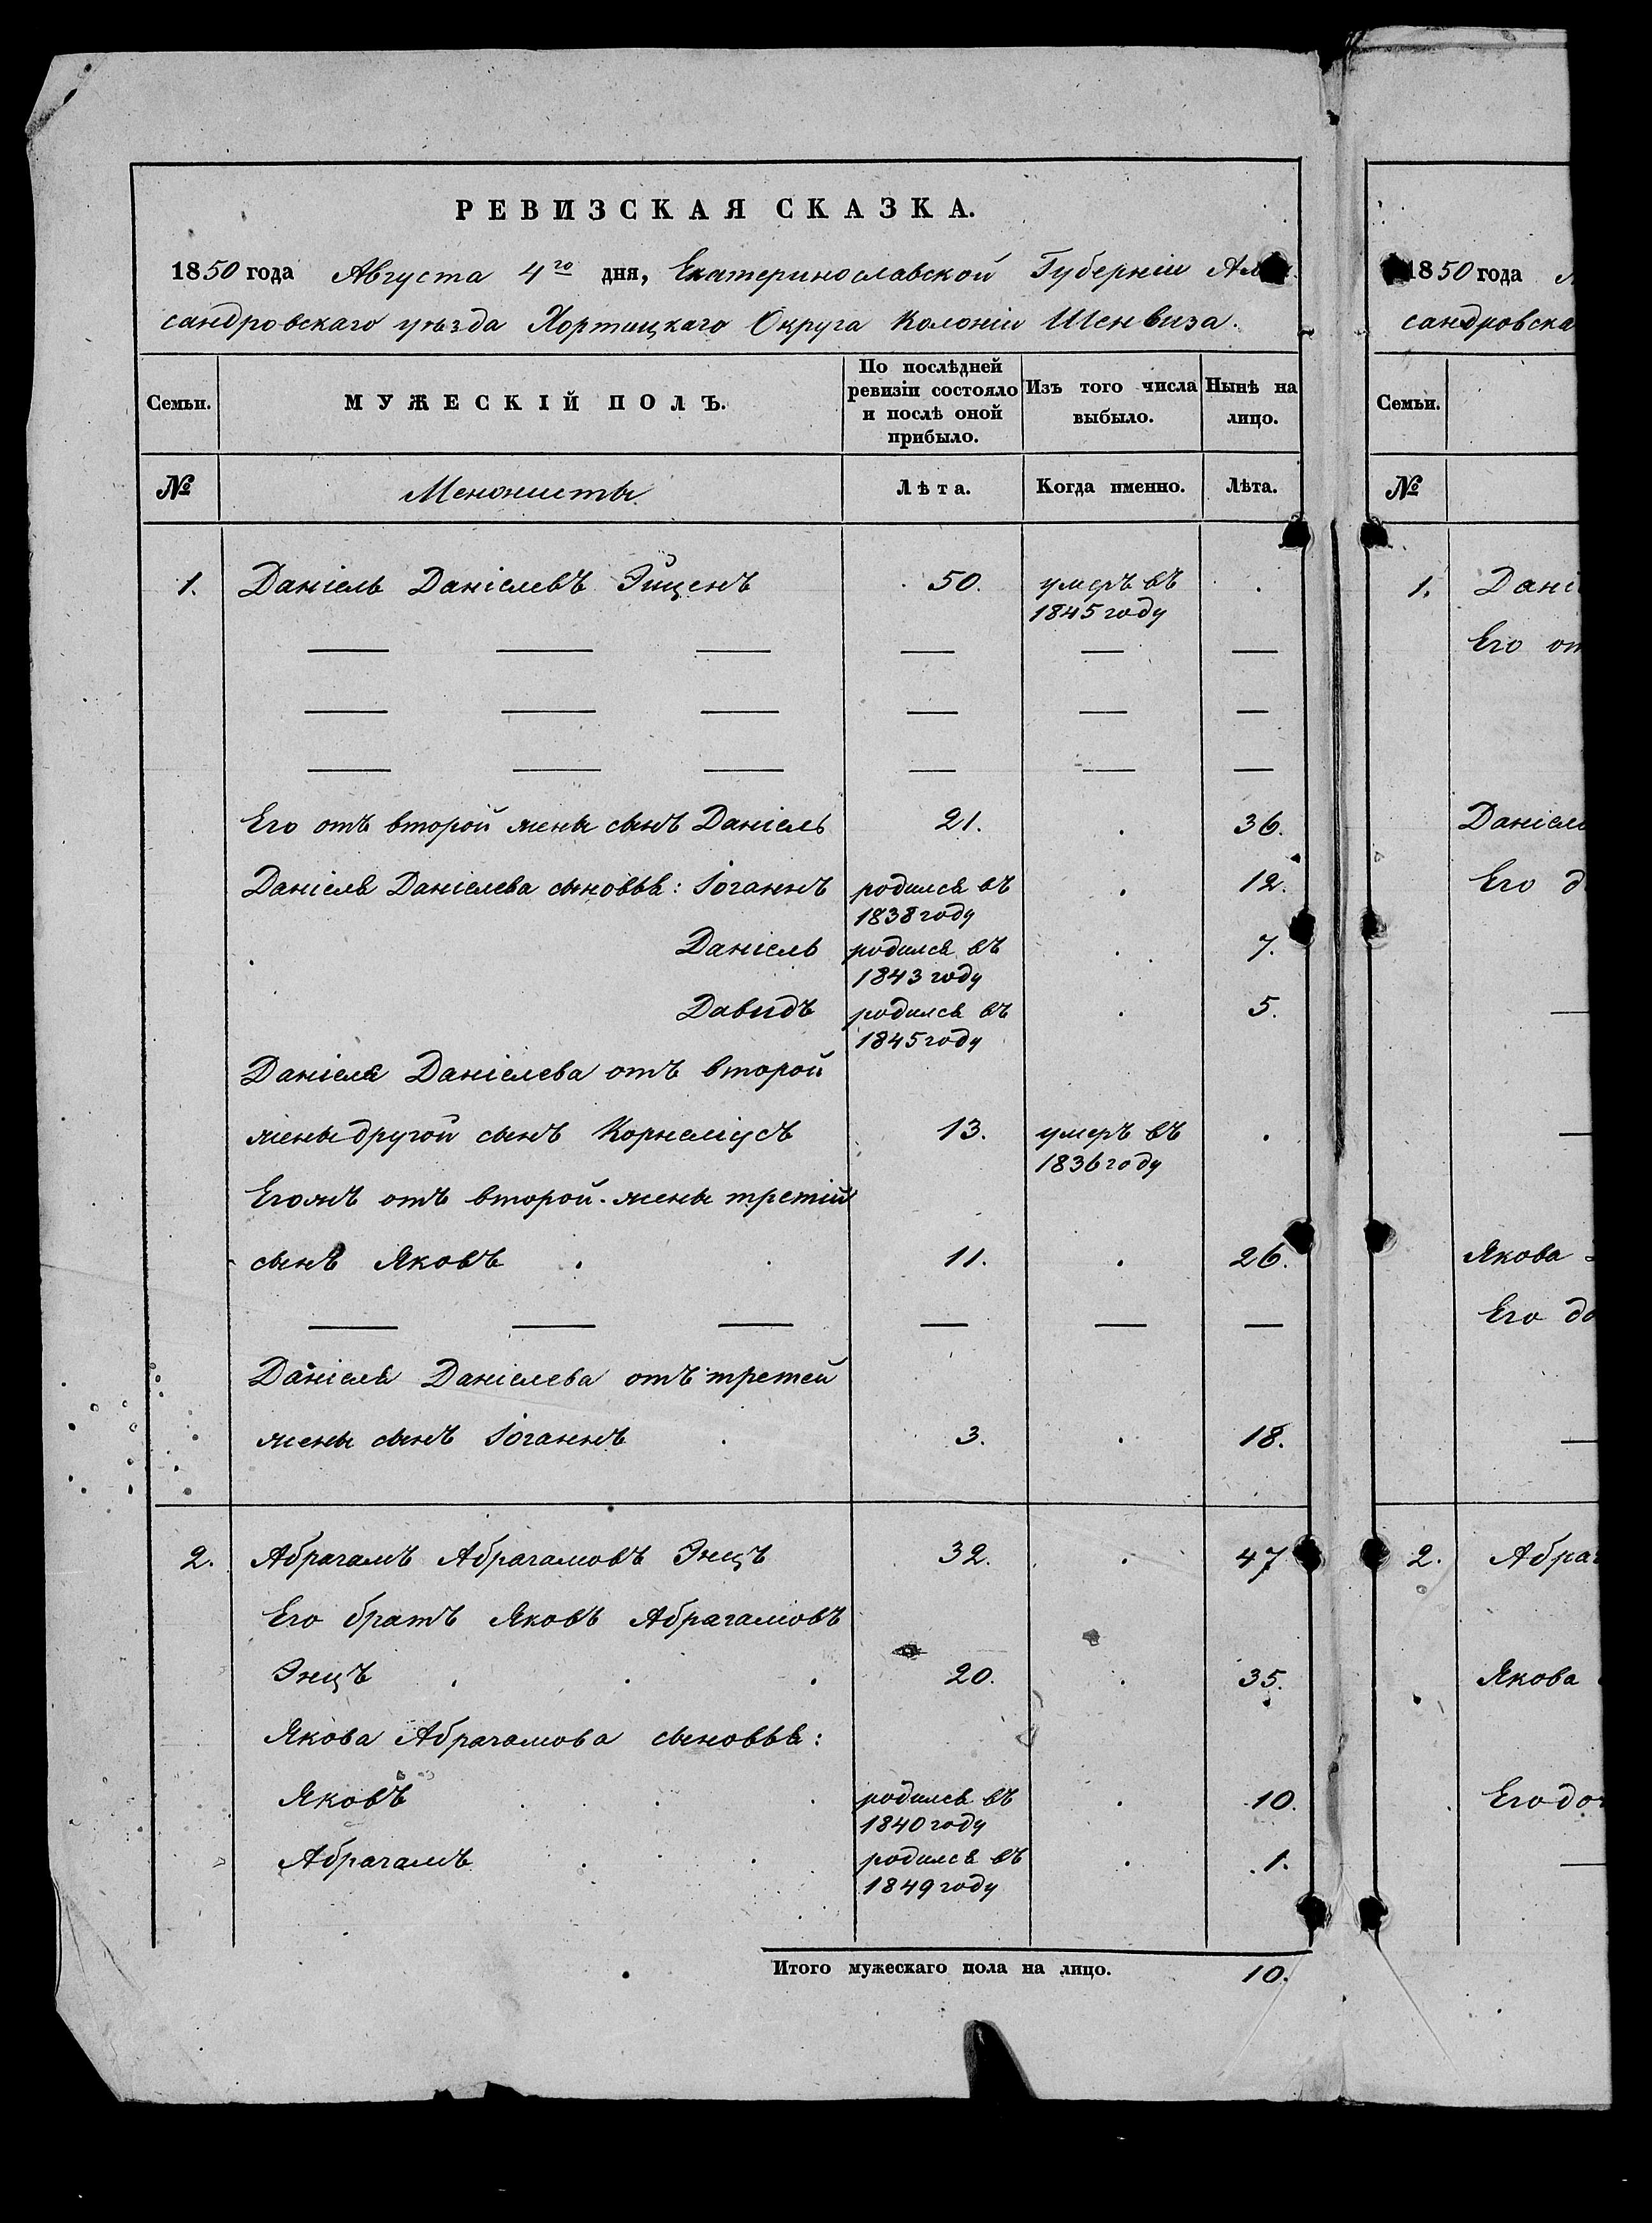 РЕВИЗСКАЯ СКАЗКА.
1850 года Августа 4го дня, Екатеринославской Губерніи Алек
сандровскаго уѣзда Хортицкаго Округа Колоніи Шенвиза.
Семьи.
МУЖЕСКІЙ ПОЛЪ.
По послѣдней
ревизіи состояло
и послѣ оной
прибыло.
Изъ того числа
выбыло.
Нынѣ на
лицо.
№ Менонисты Лѣта. Когда именно. Лѣта.
1. Даніель Даніелевъ Эйценъ 50. умеръ въ .
1845 году
— — — — — —
— — — — — —
— — — — — —
Его отъ второй жены сынъ Даніель 21. . 36.
Даніеля Даніелева сыновья: Іоганнъ родился въ . 12.
1838 году
Даніель родился въ . 7.
1843 году
Давидъ родился въ . 5.
1845 году
Даніеля Даніелева отъ второй
жены другой сынъ Корнеліусъ 13. умеръ въ .
1836 году
Егожъ отъ второй жены третій
сынъ Яковъ . . 11. . 26.
— — — — — —
Даніеля Даніелева отъ третей
жены сынъ Іоганнъ . 3. . 18.
2. Абрагамъ Абрагамовъ Энцъ 32. . 47
Его братъ Яковъ Абрагамовъ
Энцъ . . . 20. . 35.
Якова Абрагамова сыновья:
Яковъ . . . родился въ . 10.
1840 году
Абрагамъ . . . родился въ . 1.
1849 году
Итого мужескаго пола на лицо. 10.
1850 года
сандровска
Семьи.
№
1. Дані
Его от
Даніел
Его д
—
—
Якова
Его до
—
2. Абраг
Якова
Его доч
—